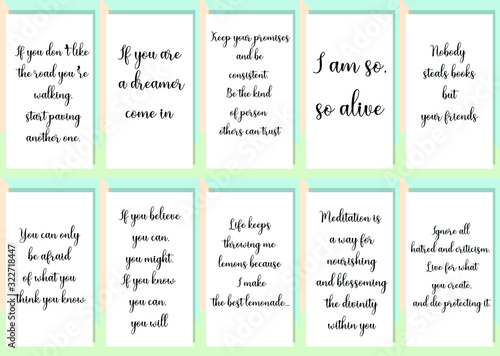 If you don't like
the road you're
walking,
start paving
another one.
If you are
a dreamer
come in
Keep your promises
and be
consistent.
Be the kind
of person
others can trust
I am so,
so alive
Nobody
steals books
but
your friends
You can only
be afraid
of what you
think you know
If you believe
you can,
you might.
If you know
you can,
you will
Life keeps
throwing me
lemons because
I make
the best lemonade...
Meditation is
a way for
nourishing
and blossoming
the divinity
within you
Ignore all
hatred and criticism.
Live for what
you create,
and die protecting it.
322718447